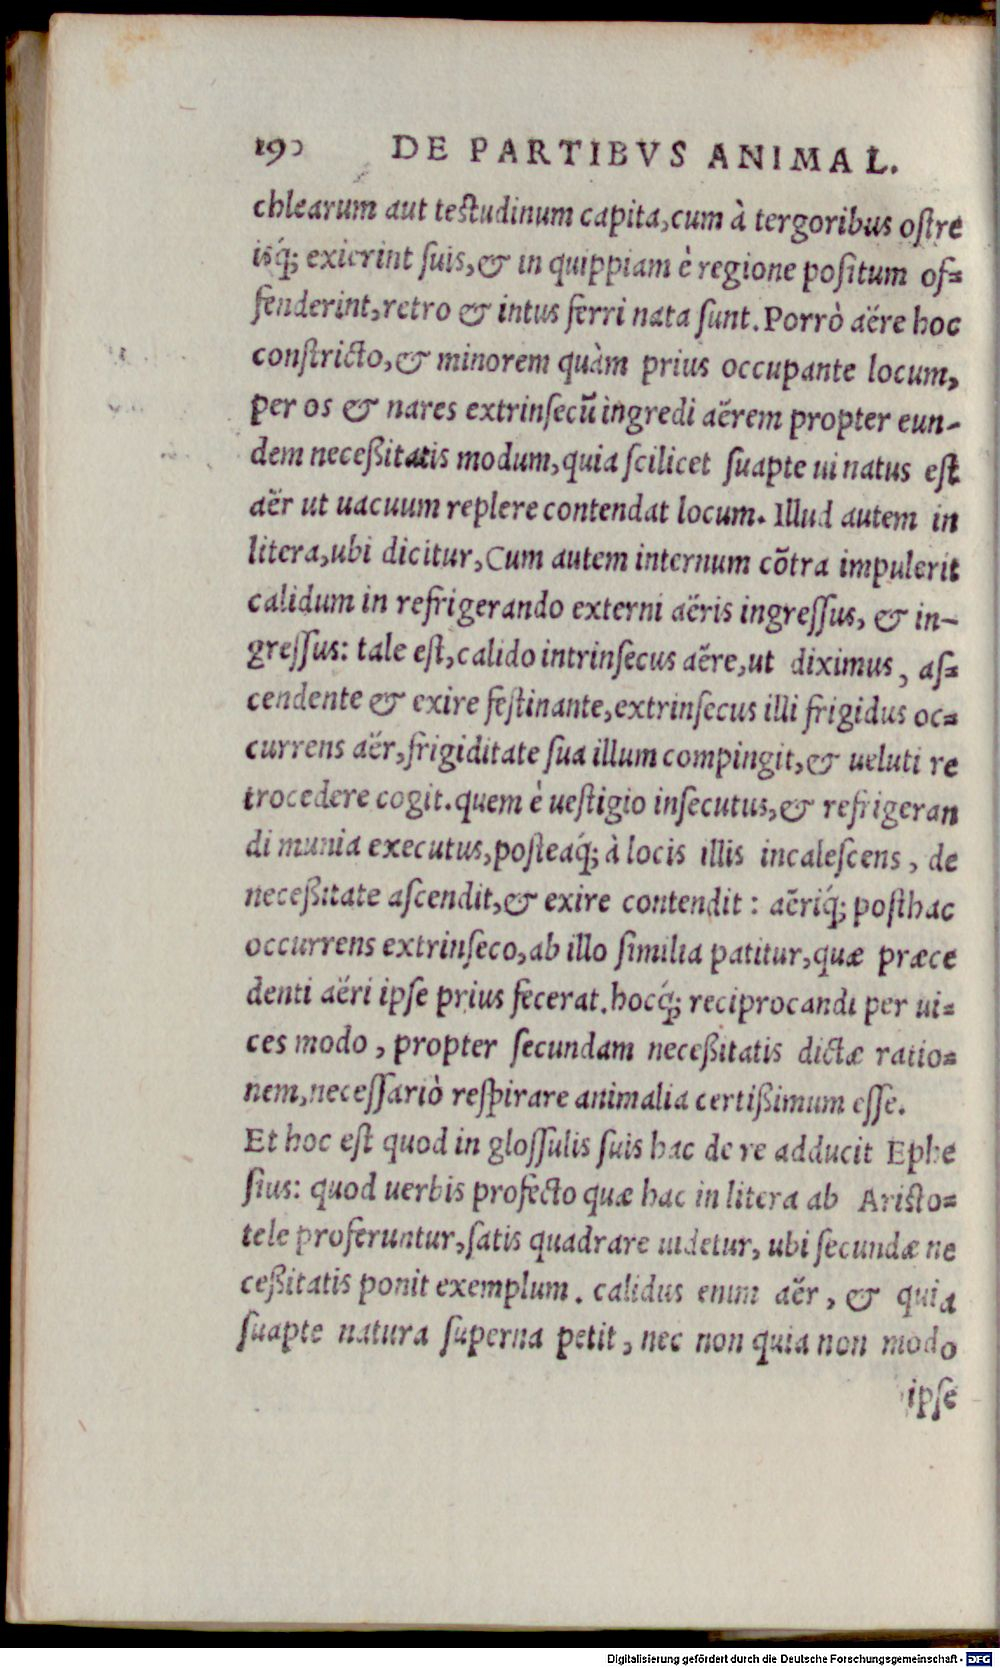 190 DE PARTIBVS ANIMAL.
chlearum aut testudinum capita, cum à tergoribus ostre
isq́; exierint suis, & in quippiam è regione positum of=
fenderint, retro & intus ferri nata sunt. Porrò aëre hoc
constricto, & minorem quàm prius occupante locum,
per os & nares extrinsecũ ingredi aërem propter eun-
dem neceßitatis modum, quia scilicet suapte ui natus est
aër ut uacuum replere contendat locum. Illud autem in
litera, ubi dicitur, Cum autem internum cõtra impulerit
calidum in refrigerando externi aëris ingressus, & in-
gressus: tale est, calido intrinsecus aëre, ut diximus, as=
cendente & exire festinante, extrinsecus illi frigidus oc=
currens aër, frigiditate sua illum compingit, & ueluti re
trocedere cogit. quem è uestigio insecutus, & refrigeran
di munia executus, posteaq́; à locis illis incalescens, de
neceßitate ascendit, & exire contendit: aëriq́; posthac
occurrens extrinseco, ab illo similia patitur, quæ præce
denti aëri ipse prius fecerat. hocq́; reciprocandi per ui=
ces modo, propter secundam neceßitatis dictæ ratio=
nem, necessariò respirare animalia certißimum esse.
Et hoc est quod in glossulis suis hac de re adducit Ephe
sius: quod uerbis profecto quæ hac in litera ab Aristo=
tele proferuntur, satis quadrare uidetur, ubi secundæ ne
ceßitatis ponit exemplum. calidus enim aër, & quia
suapte natura superna petit, nec non quia non modo
ipse
Digitalisierung gefördert durch die Deutsche Forschungsgemeinschaft - DFG